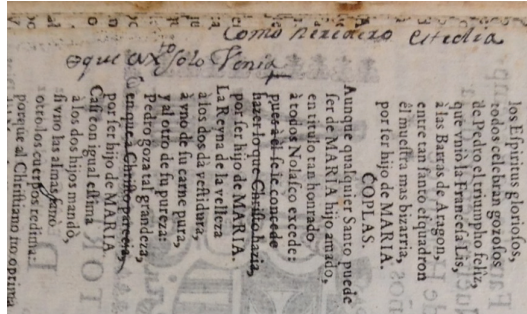 Como heredero este dia
que a Xpo solo Venia
los Espiritus gloriosos,
todos celebran gozosos
de Pedro el triumpho feliz,
que vniò la Francesa Lis,
à las Barras de Aragon,
entre tan santo esquadron
èl muestra mas bizarria,
por ser hijo de MARIA.
COPLAS.
Aunque qualquier Santo puede
ser de MARIA hijo amado,
en titulo tan honrado,
à todos Nolasco excede:
pues à èl se le concede
hazer lo que Christo hazia,
por ser hijo de MARIA.
La Reyna de la velleza
à los dos dà vestidura,
à vno de su carne pura,
y al otro de su pureza:
Pedro goza tal grandeza,
en que à Christo parecia,
por ser hijo de MARIA.
Casi con igual estima
à los dos hijos mandò,
sivno las almas
otro los cuerpos redima:
porque al Christiano no